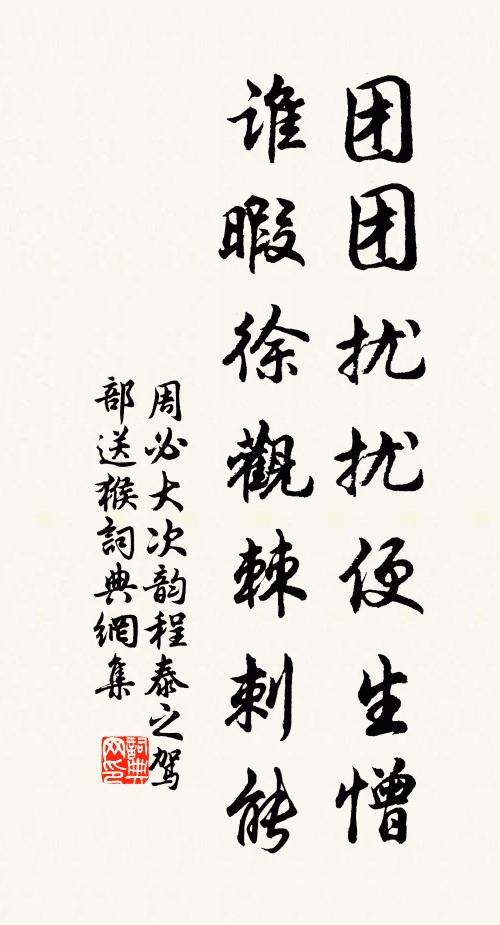 团团扰扰便生憎
谁暇徐觀棘刺能
周必大次韵程泰之驾
部送猴詞典網集
詞典网印